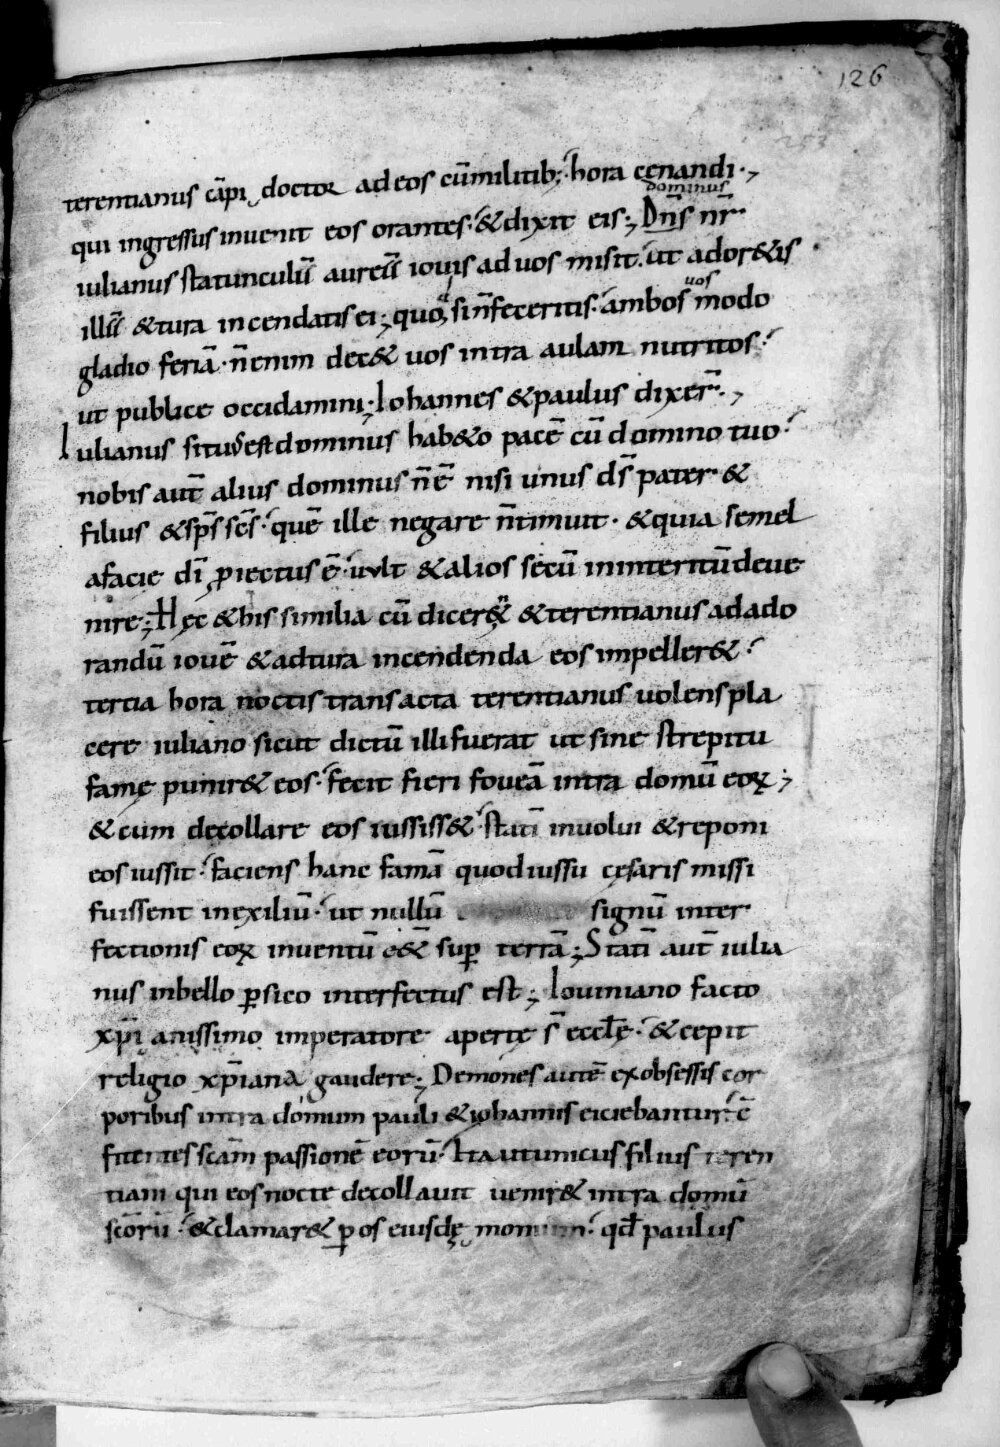 126
253
terentianus cãpi doctor ad eos cũ militib; hora cenandi·,
dominus
qui ingressus inuenit eos orantes· & dixit eis; Dñs nr̃
iulianus statunculũ aureũ iouis ad uos misit· ut ador&is
uos
illũ & tura incendatis ei; quod, si ñ feceritis· ambos modo
gladio feriã· ñ enim dec& uos intra aulam nutritos
ut publice occidamini; Iohannes & paulus dixer̃·,
Iulianus si tuus est dominus hab&o pacẽ cũ domino tuo
nobis aut̃ alius dominus ñ ẽ nisi unus ds̃ pater· &
filius & sps̃ scs̃· quẽ ille negare ñ timuit· & quia semel
a facie dĩ ꝓiectus ẽ· uult & alios secũ in interitũ deue
nire; Hęc & his similia cũ dicer& & terentianus ad ado
randũ iouẽ & ad tura incendenda eos impeller&
tertia hora noctis transacta terentianus uolens pla
cere iuliano sicut dictũ illi fuerat ut sine strepitu
famę punir& eos· fecit fieri foueã intra domũ eoꝝ;
& cum decollare eos iussiss& statĩ inuolui & reponi
eos iussit· faciens hanc famã quod iussu cęsaris missi
fuissent in exiliũ· ut nullũ signũ inter
fectionis eoꝝ inuentũ e&̃ suꝑ terrã; Statĩ aut̃ iulia
nus in bello ꝑsico interfectus est; Iouiniano facto
xp̃ianissimo imperatore apertę s̃ eccl̃ę· & cepit
religio xp̃iana gaudere; Demones autẽ ex obsessis cor
poribus intra domum pauli & iohannis eiciebantur· c̃
fitentes scãm passionẽ eorũ· Ita ut unicus filius teren
tiani qui eos nocte decollauit uenir& intra domũ
scõrũ & clamar& ꝑ os eiusdę qd̃ paulus